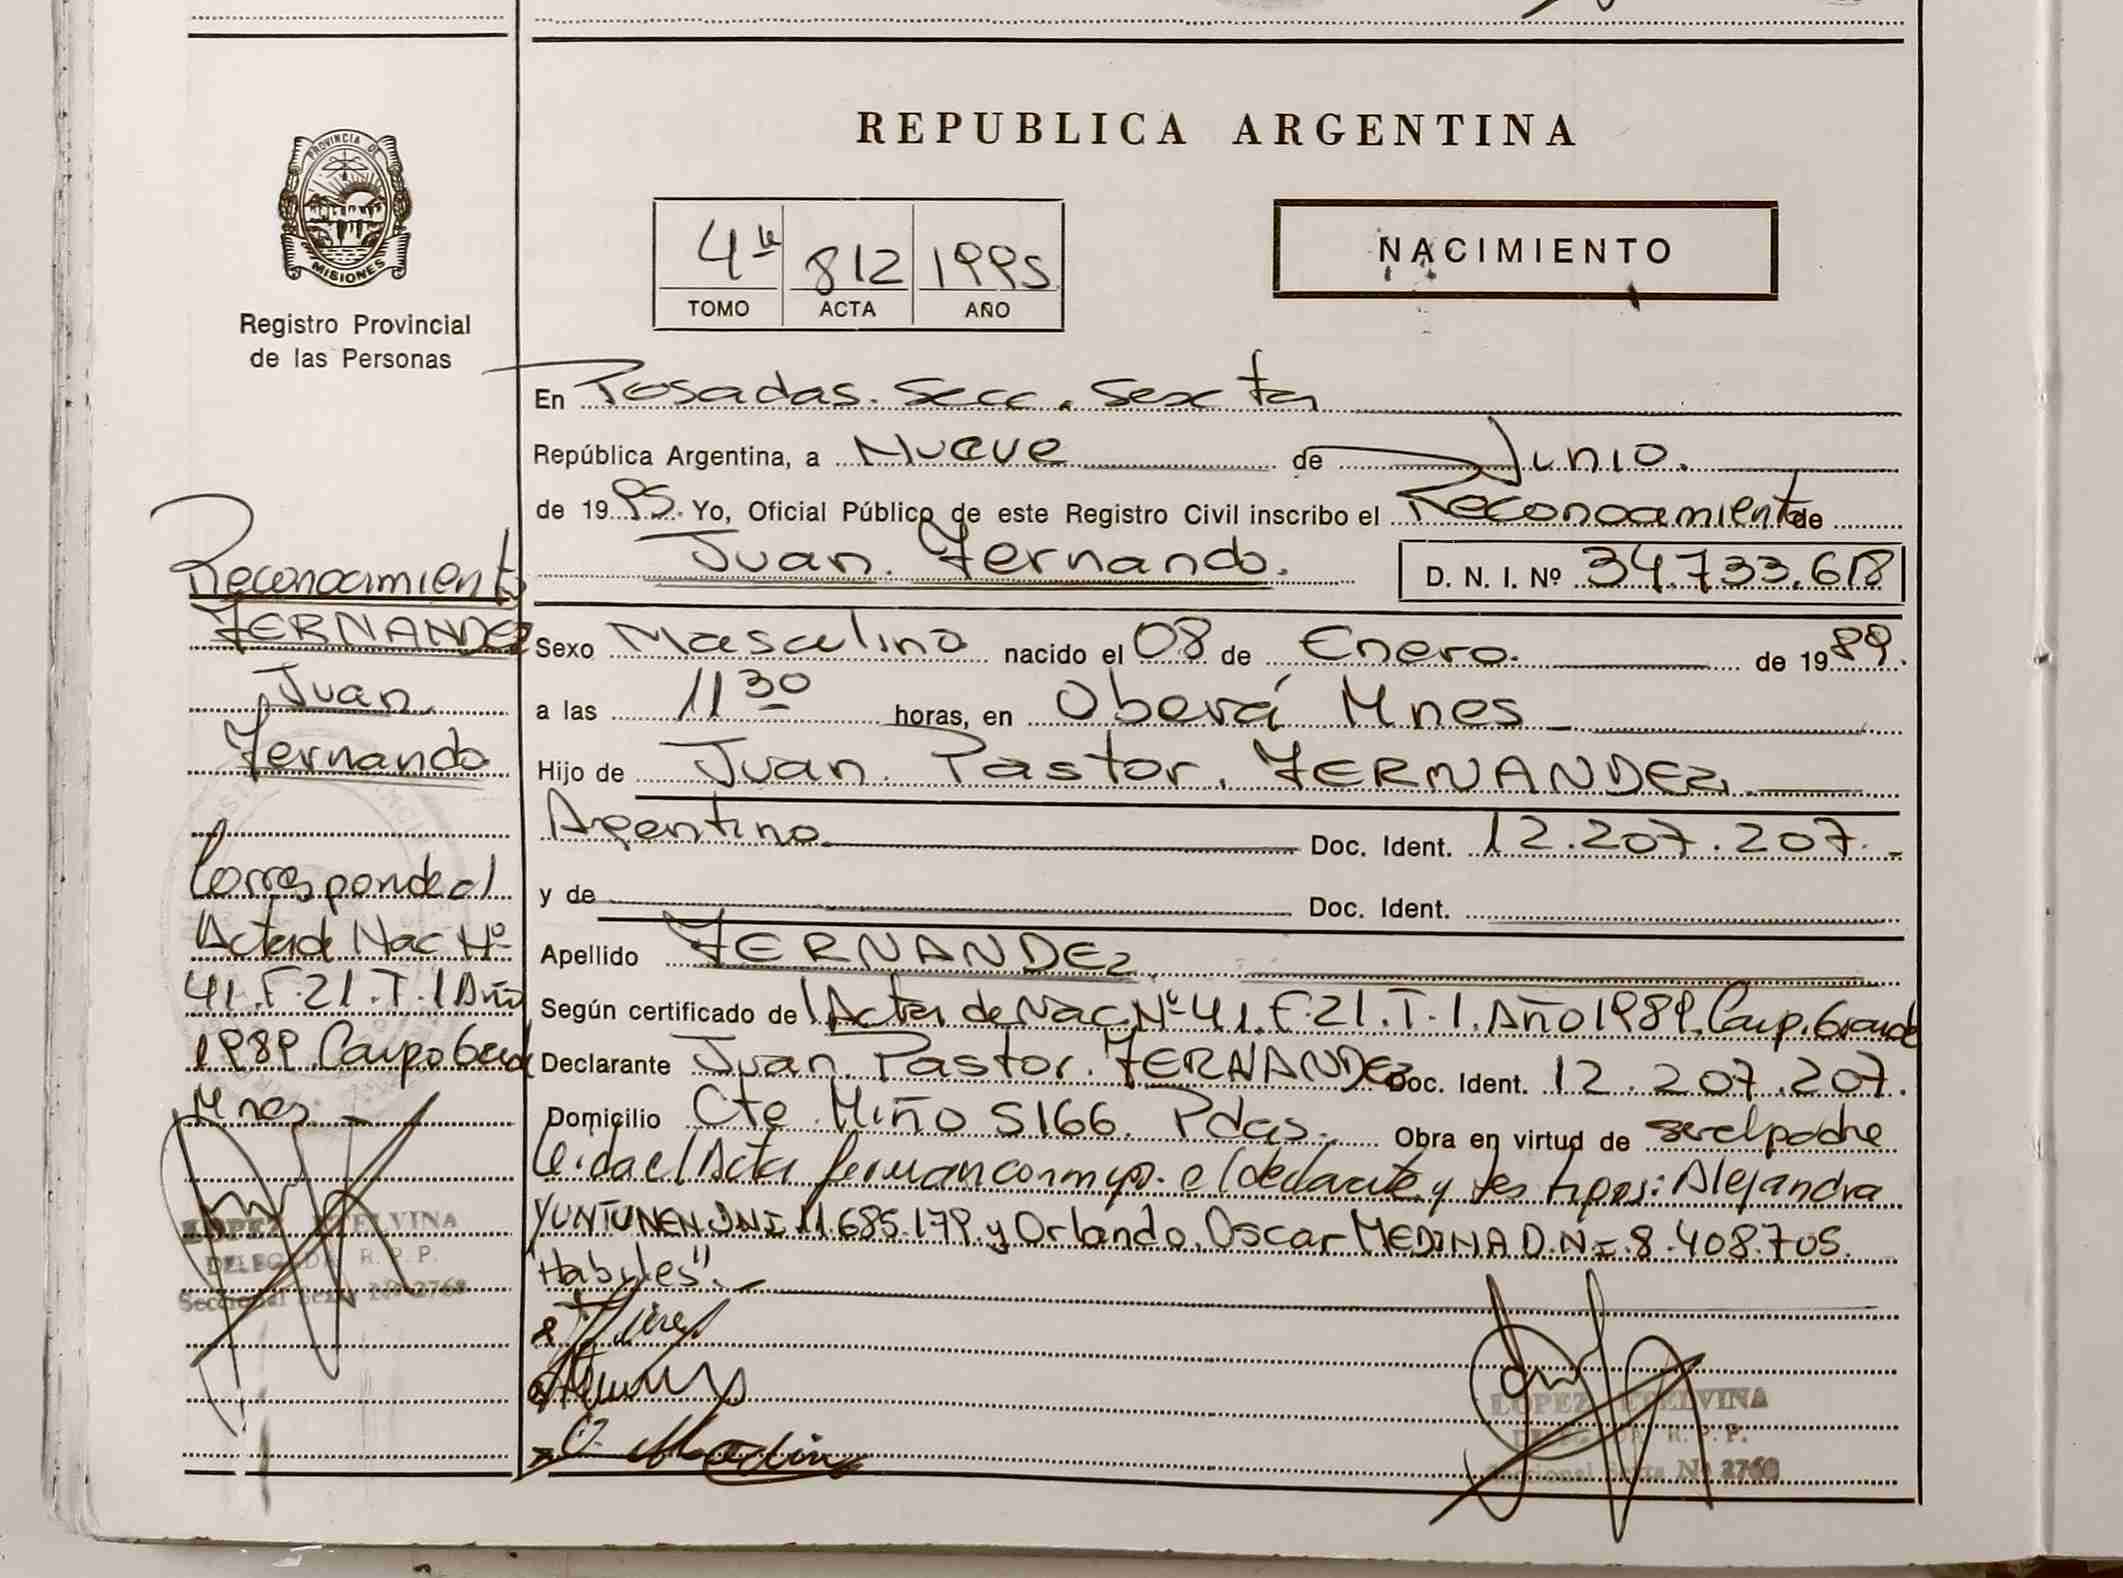 PROVINCIA DE
MISIONES
Registro Provincial
de las Personas
REPUBLICA ARGENTINA
4to 812 1995
TOMO ACTA AÑO
NACIMIENTO
En Posadas. Secc. Sexta
República Argentina, a Nueve de Junio.
de 1995. Yo, Oficial Público de este Registro Civil inscribo el Reconocimiento de
Juan. Fernando. D. N. I. Nº 34.733.618
Sexo Masculino nacido el 08 de Enero. de 1989.
a las 11 30 horas, en Oberá Mnes
Hijo de Juan. Pastor. FERNANDEZ.
Argentino. Doc. Ident. 12.207.207.
y de Doc. Ident.
Apellido FERNANDEZ.
Según certificado de Acta de Nac. Nº 41. F. 21. T. 1. Año 1989. Camp. Grande
Declarante Juan. Pastor. FERNANDEZ Doc. Ident. 12.207.207.
Domicilio Cte Miño 5166. Pdas. Obra en virtud de ser el padre
Leida el Acta firman conmigo. el declarante y tes tigos: Alejandra
YUNTUNEN DNI 11.685.179. y Orlando. Oscar MEDINA D.NI. 8.408.705.
"Habiles".
LOPEZ ETELVINA
DELEGADA R. P. P.
Seccional Sexta Nº 2760
Reconocimiento
FERNANDEZ
Juan.
Fernando
Corresponde al
Acta de Nac Nº
41. F. 21. T. 1 Año
1989. Campo Grande
Mnes.
LOPEZ ETELVINA
DELEGADA R. P. P.
Seccional Sexta Nº 2760